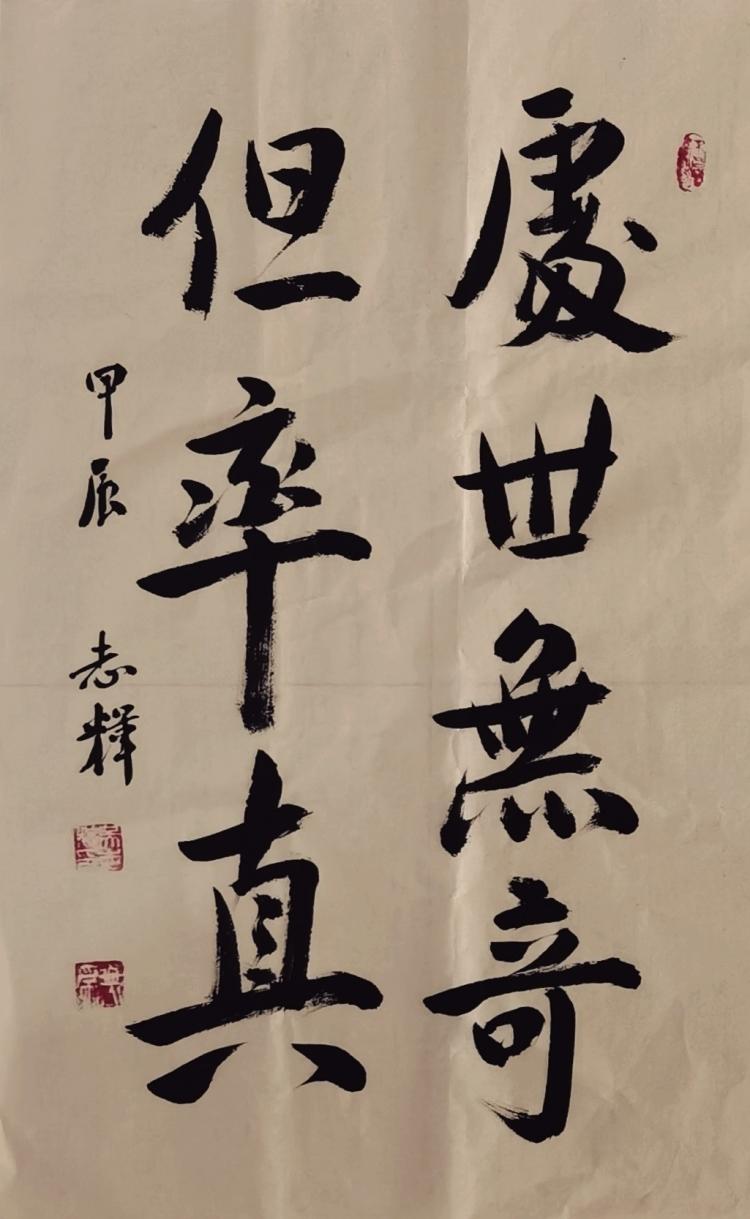 處世無奇
但率真
甲辰 志輝